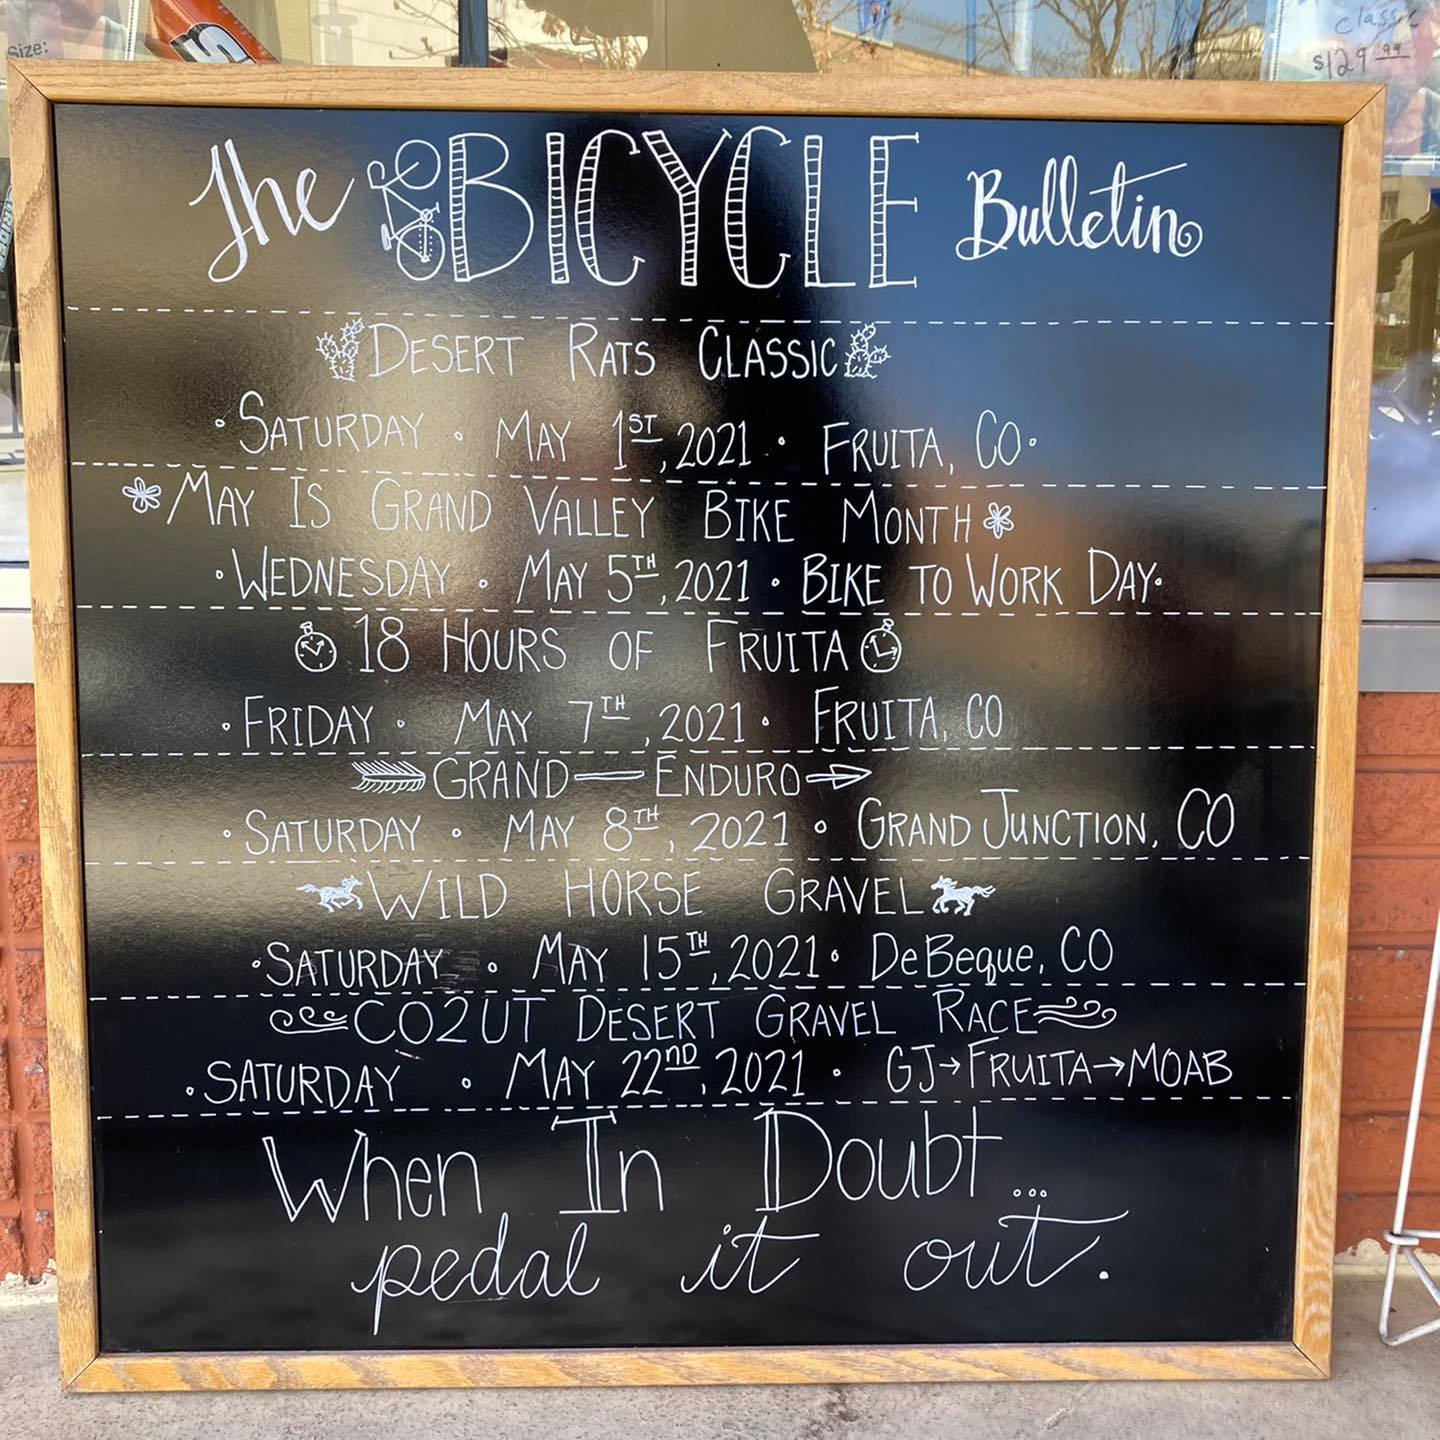 Size:
classic
$129.99
The BICYCLE Bulletin
DESERT RATS CLASSIC
• SATURDAY • MAY 1ST, 2021 • FRUITA, CO •
MAY IS GRAND VALLEY BIKE MONTH
• WEDNESDAY • MAY 5TH, 2021 • BIKE TO WORK DAY •
18 HOURS OF FRUITA
• FRIDAY • MAY 7TH, 2021 • FRUITA, CO
GRAND — ENDURO
• SATURDAY • MAY 8TH, 2021 • GRAND JUNCTION, CO
WILD HORSE GRAVEL
• SATURDAY • MAY 15TH, 2021 • DeBeque, CO
CO2UT DESERT GRAVEL RACE
• SATURDAY • MAY 22ND, 2021 • GJ→FRUITA→MOAB
When In Doubt...
pedal it out.